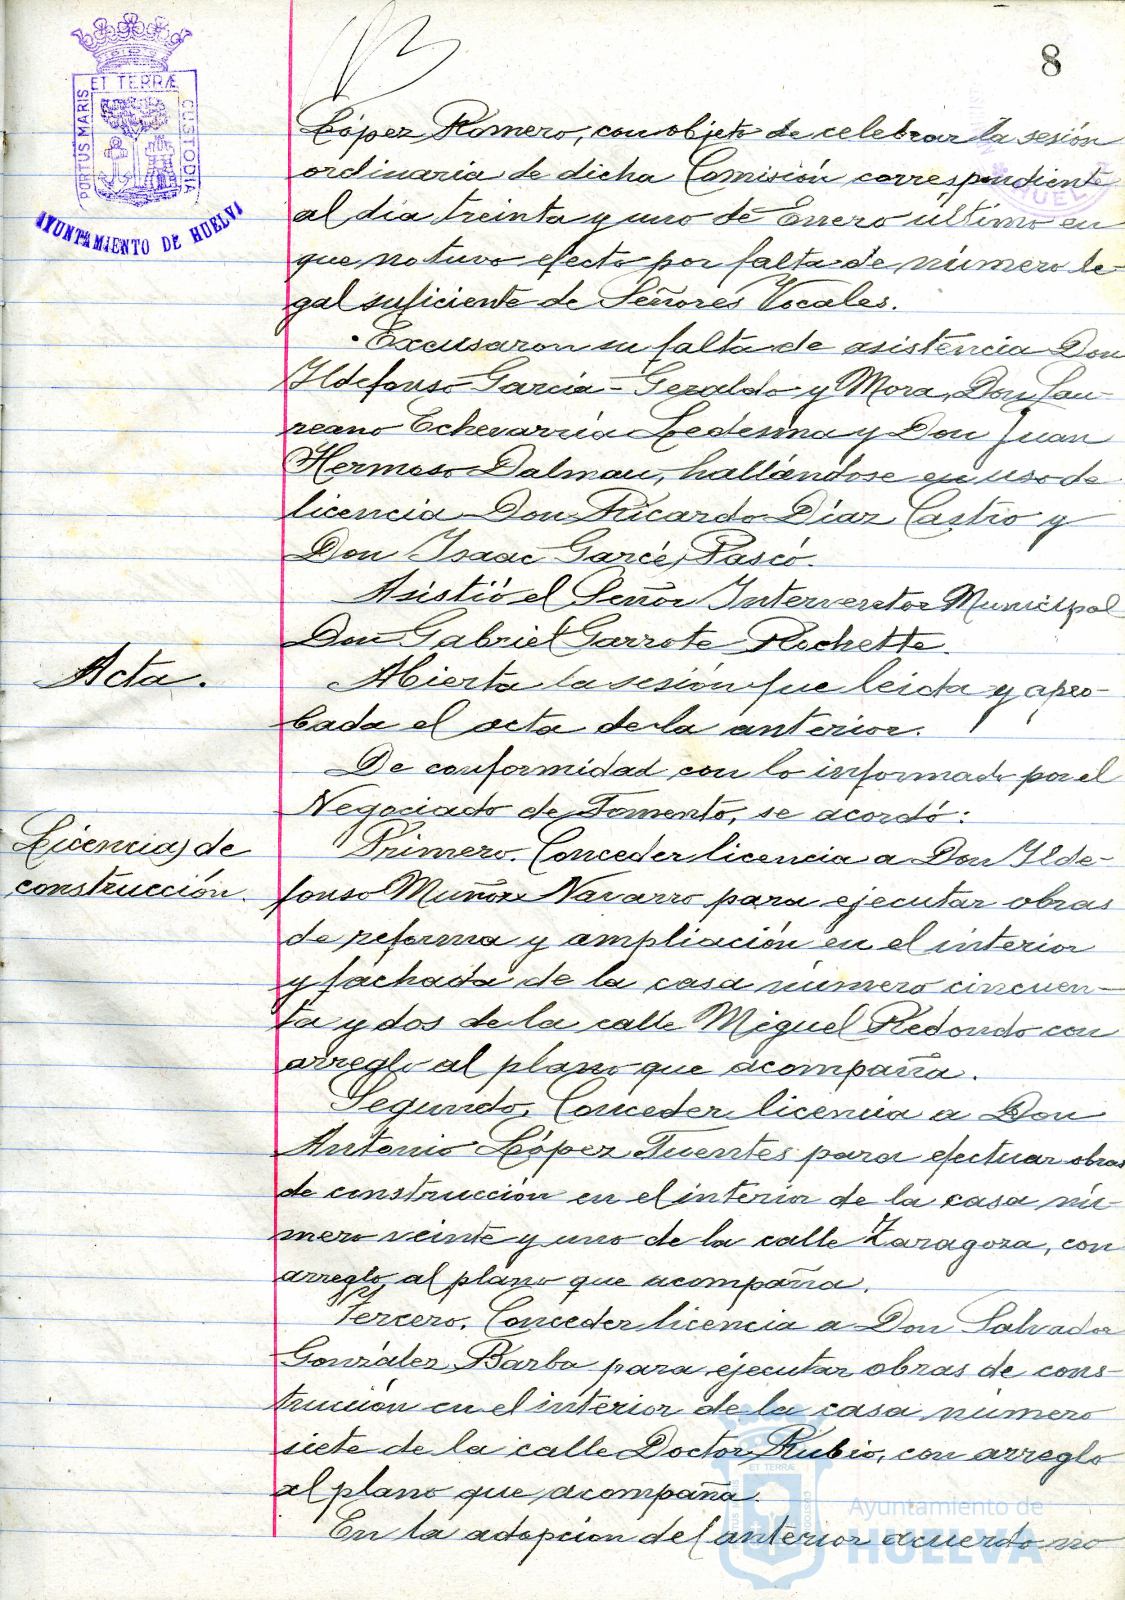 8
ET TERRÆ
PORTUS MARIS
CUSTODIA
AYUNTAMIENTO DE HUELVA
López Romero, con objeto de celebrar la sesión
ordinaria de dicha Comisión correspondiente
al día treinta y uno de Enero último en
que no tuvo efecto por falta de número le-
gal suficiente de Señores Vocales.
Excusaron su falta de asistencia Don
Ildefonso García-Geraldo y Mora, Don Lau-
reano Echevarría Ledesma y Don Juan
Hermoso Dalmau, hallándose en uso de
licencia Don Ricardo Díaz Castro y
Don Isaac Garcé, Pascó.
Asistió el Señor Interventor Municipal
Don Gabriel Garrote Rochette.
Acta.
Abierta la sesión fue leida y apro-
bada el acta de la anterior.
De conformidad con lo informado por el
Negociado de Fomento, se acordó:
Licencias de
construcción.
Primero. Conceder licencia a Don Ilde-
fonso Muñoz Navarro para ejecutar obras
de reforma y ampliación en el interior
y fachada de la casa número cincuen-
ta y dos de la calle Miguel Redondo con
arreglo al plano que acompaña.
Segundo. Conceder licencia a Don
Antonio López Fuentes para efectuar obras
de construcción en el interior de la casa nú-
mero veinte y uno de la calle Zaragoza, con
arreglo al plano que acompaña.
Tercero. Conceder licencia a Don Salvador
González Barba para ejecutar obras de cons-
trucción en el interior de la casa número
siete de la calle Doctor Rubio, con arreglo
al plano que acompaña.
En la adopción del anterior acuerdo no
Ayuntamiento de
HUELVA